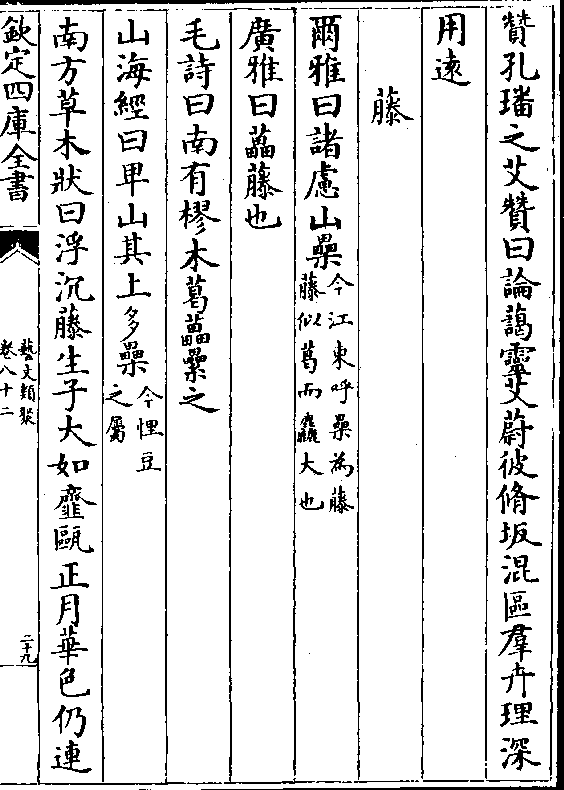 贊孔璠之艾贊曰論藹靈艾蔚彼脩坂混區羣卉理深
用遠
藤
爾雅曰諸慮山櫐今江東呼櫐為藤
藤似葛而麤大也
廣雅曰藟藤也
毛詩曰南有樛木葛藟纍之
山海經曰卑山其上多櫐今狸豆
之屬
南方草木狀曰浮沉藤生子大如甌正月華色仍連
欽定四庫全書
藝文類聚
卷八十二
二十九